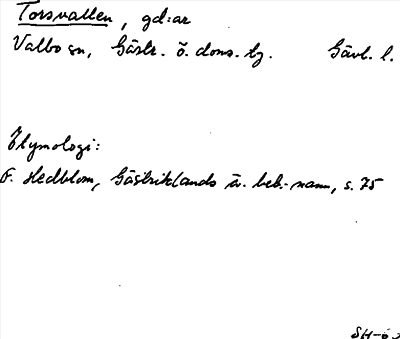 Torsvallen, gd:ar
Valbo sn, Gästr. ö. doms. tg. Gävl. l.
Etymologi:
F. Hedblom, Gästriklands ä. beb.-namn, s. 75
SH-6